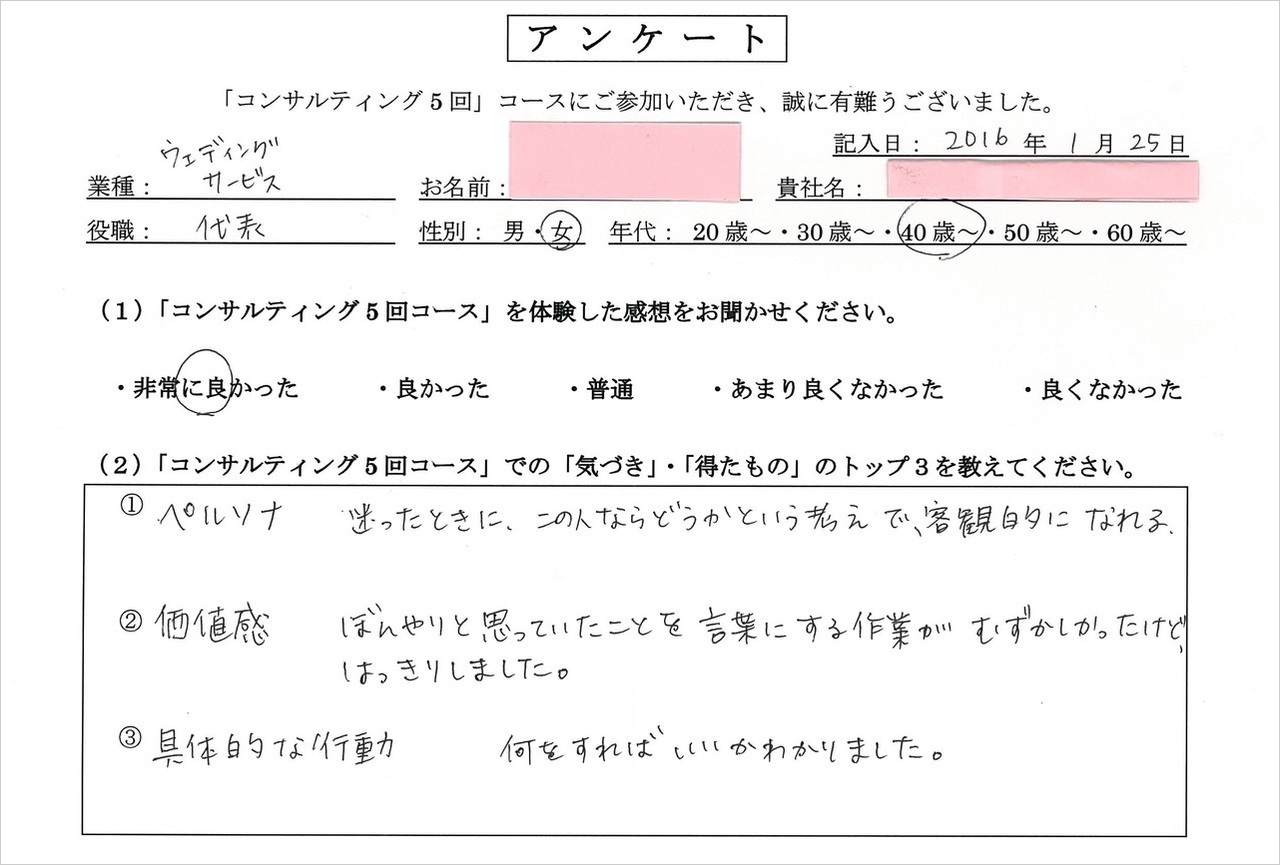 アンケート
「コンサルティング5回」コースにご参加いただき、誠に有難うございました。
記入日： 2016 年 1 月 25 日
業種： ウェディング
サービス
お名前：
貴社名：
役職： 代表
性別： 男・女
年代： 20歳～・30歳～・40歳～・50歳～・60歳～
（1）「コンサルティング5回コース」を体験した感想をお聞かせください。
・非常に良かった ・良かった ・普通 ・あまり良くなかった ・良くなかった
（2）「コンサルティング5回コース」での「気づき」・「得たもの」のトップ3を教えてください。
① ペルソナ 迷ったときに、この人ならどうかという考えで、客観的になれる.
② 価値感 ぼんやりと思っていたことを言葉にする作業がむずかしかったけど、
はっきりしました。
③ 具体的な行動 何をすればいいかわかりました。